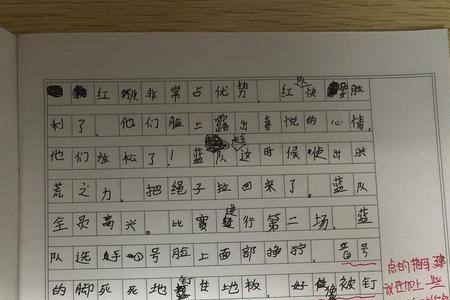 红队非常占优势，红队快要胜
利了，他们脸上露出喜悦的心情，
他们放松了！蓝队这时候使出洪
荒之力，把绳子拉回来了。蓝队
全员高兴。比赛进行第二场，蓝
队选手①号脸上面部狰狞，①号
的脚死死地钉住地板，好像被钉
点的描写
可以加上一些